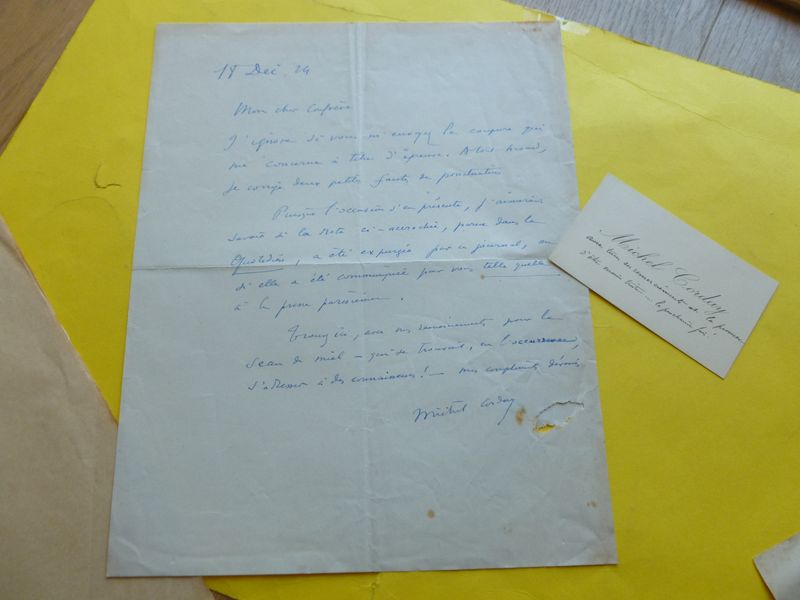 18 Déc. 24
Mon cher Confrère
J'ignore si vous m'envoyez la coupure qui
me concerne à titre d'épreuve. A tout hasard,
je corrige deux petites fautes de ponctuation
Puisque l'occasion s'en présente, j'aimerais
savoir si la note ci-accrochée, parue dans le
Quotidien, a été expurgée par ce journal, ou
si elle a été communiquée par vous telle quelle
à la presse parisienne.
avec mes remerciements pour le
de miel — qui se trouvait, en l'occurrence,
s'adresser à des connaisseurs! — mes compliments dévoués
Michel Corday
Michel Corday
avec tous ses remerciements de la
d'être moins la prochaine fois.